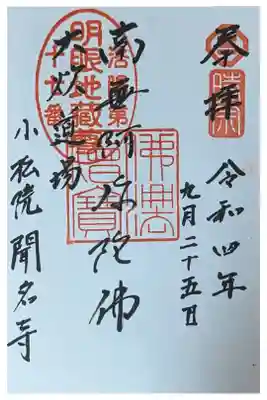 奉拝
時宗
令和四年
九月二十五日
南無阿弥陀佛
佛法
僧寶
明眼地蔵
大炊道場
小松院 聞名寺